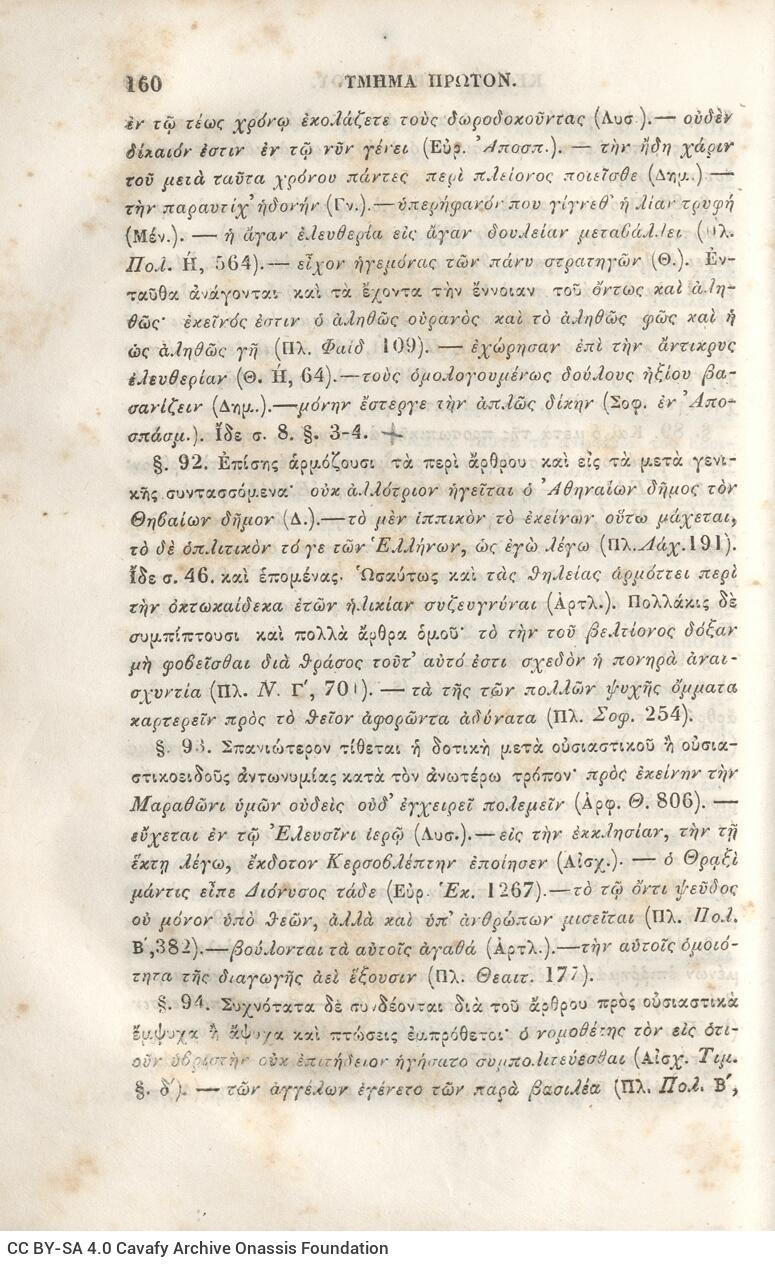 160 ΤΜΗΜΑ ΠΡΩΤΟΝ.
ἐν τῷ τέως χρόνῳ ἐκολάζετε τοὺς δωροδοκοῦντας (Λυσ.).— οὐδὲν
δίκαιόν ἐστιν ἐν τῷ νῦν γένει (Εὐρ. Ἀποσπ.). — τὴν ἤδη χάριν
τοῦ μετὰ ταῦτα χρόνου πάντες περὶ πλείονος ποιεῖσθε (Δημ.) —
τὴν παραυτίχ' ἡδονὴν (Γν.).—ὑπερήφανόν που γίγνεθ' ἡ λίαν τρυφή
(Μέν.). — ἡ ἄγαν ἐλευθερία εἰς ἄγαν δουλείαν μεταβάλλει (Πλ.
Πολ. Ἠ, 564).— εἶχον ἡγεμόνας τῶν πάνυ στρατηγῶν (Θ.). Ἐν-
ταῦθα ἀνάγονται καὶ τὰ ἔχοντα τὴν ἔννοιαν τοῦ ὄντως καὶ ἀλη-
θῶς· ἐκεῖνός ἐστιν ὁ ἀληθῶς οὐρανὸς καὶ τὸ ἀληθῶς φῶς καὶ ἡ
ὡς ἀληθῶς γῆ (Πλ. Φαίδ 109). — ἐχώρησαν ἐπὶ τὴν ἄντικρυς
ἐλευθερίαν (Θ. Ἠ, 64).—τοὺς ὁμολογουμένως δούλους ἠξίου βα-
σανίζειν (Δημ.).—μόνην ἔστεργε τὴν ἁπλῶς δίκην (Σοφ. ἐν Ἀπο-
σπάσμ.). Ἴδε σ. 8. §. 3-4. +
§. 92. Ἐπίσης ἁρμόζουσι τὰ περὶ ἄρθρου καὶ εἰς τὰ μετὰ γενι-
κῆς συντασσόμενα· οὐκ ἀλλότριον ἡγεῖται ὁ Ἀθηναίων δῆμος τὸν
Θηβαίων δῆμον (Δ.).—τὸ μὲν ἱππικὸν τὸ ἐκείνων οὕτω μάχεται,
τὸ δὲ ὁπλιτικὸν τό γε τῶν Ἑλλήνων, ὡς ἐγὼ λέγω (Πλ. Λάχ. 191).
Ἴδε σ. 46. καὶ ἑπομένας. Ὡσαύτως καὶ τὰς θηλείας ἁρμόττει περὶ
τὴν ὀκτωκαίδεκα ἐτῶν ἡλικίαν συζευγνύναι (Ἀρτλ.). Πολλάκις δὲ
συμπίπτουσι καὶ πολλὰ ἄρθρα ὁμοῦ· τὸ τὴν τοῦ βελτίονος δόξαν
μὴ φοβεῖσθαι διὰ θράσος τοῦτ' αὐτό ἐστι σχεδὸν ἡ πονηρὰ ἀναι-
σχυντία (Πλ. Ν. Γ', 701). — τὰ τῆς τῶν πολλῶν ψυχῆς ὄμματα
καρτερεῖν πρὸς τὸ θεῖον ἀφορῶντα ἀδύνατα (Πλ. Σοφ. 254).
§. 93. Σπανιώτερον τίθεται ἡ δοτικὴ μετὰ οὐσιαστικοῦ ἢ οὐσια-
στικοειδοῦς ἀντωνυμίας κατὰ τὸν ἀνωτέρω τρόπον· πρὸς ἐκείνην τὴν
Μαραθῶνι ὑμῶν οὐδεὶς οὐδ' ἐγχειρεῖ πολεμεῖν (Ἀρφ. Θ. 806). —
εὔχεται ἐν τῷ Ἐλευσῖνι ἱερῷ (Λυσ.).—εἰς τὴν ἐκκλησίαν, τὴν τῇ
ἕκτῃ λέγω, ἔκδοτον Κερσοβλέπτην ἐποίησεν (Αἰσχ.). — ὁ Θρῃξὶ
μάντις εἶπε Διόνυσος τάδε (Εὐρ. Ἑκ. 1267).—τὸ τῷ ὄντι ψεῦδος
οὐ μόνον ὑπὸ θεῶν, ἀλλὰ καὶ ὑπ' ἀνθρώπων μισεῖται (Πλ. Πολ.
Β',382).—βούλονται τὰ αὑτοῖς ἀγαθά (Ἀρτλ.).—τὴν αὑτοῖς ὁμοιό-
τητα τῆς διαγωγῆς ἀεὶ ἕξουσιν (Πλ. Θεαιτ. 177).
§. 94. Συχνότατα δὲ συνδέονται διὰ τοῦ ἄρθρου πρὸς οὐσιαστικὰ
ἔμψυχα ἢ ἄψυχα καὶ πτώσεις ἐμπρόθετοι· ὁ νομοθέτης τὸν εἰς ὁτι-
οῦν ὑβριστὴν οὐκ ἐπιτήδειον ἡγήσατο συμπολιτεύεσθαι (Αἰσχ. Τιμ.
§. δ'). — τῶν ἀγγέλων ἐγένετο τῶν παρὰ βασιλέα (Πλ. Πολ. Β',
CC BY-SA 4.0 Cavafy Archive Onassis Foundation